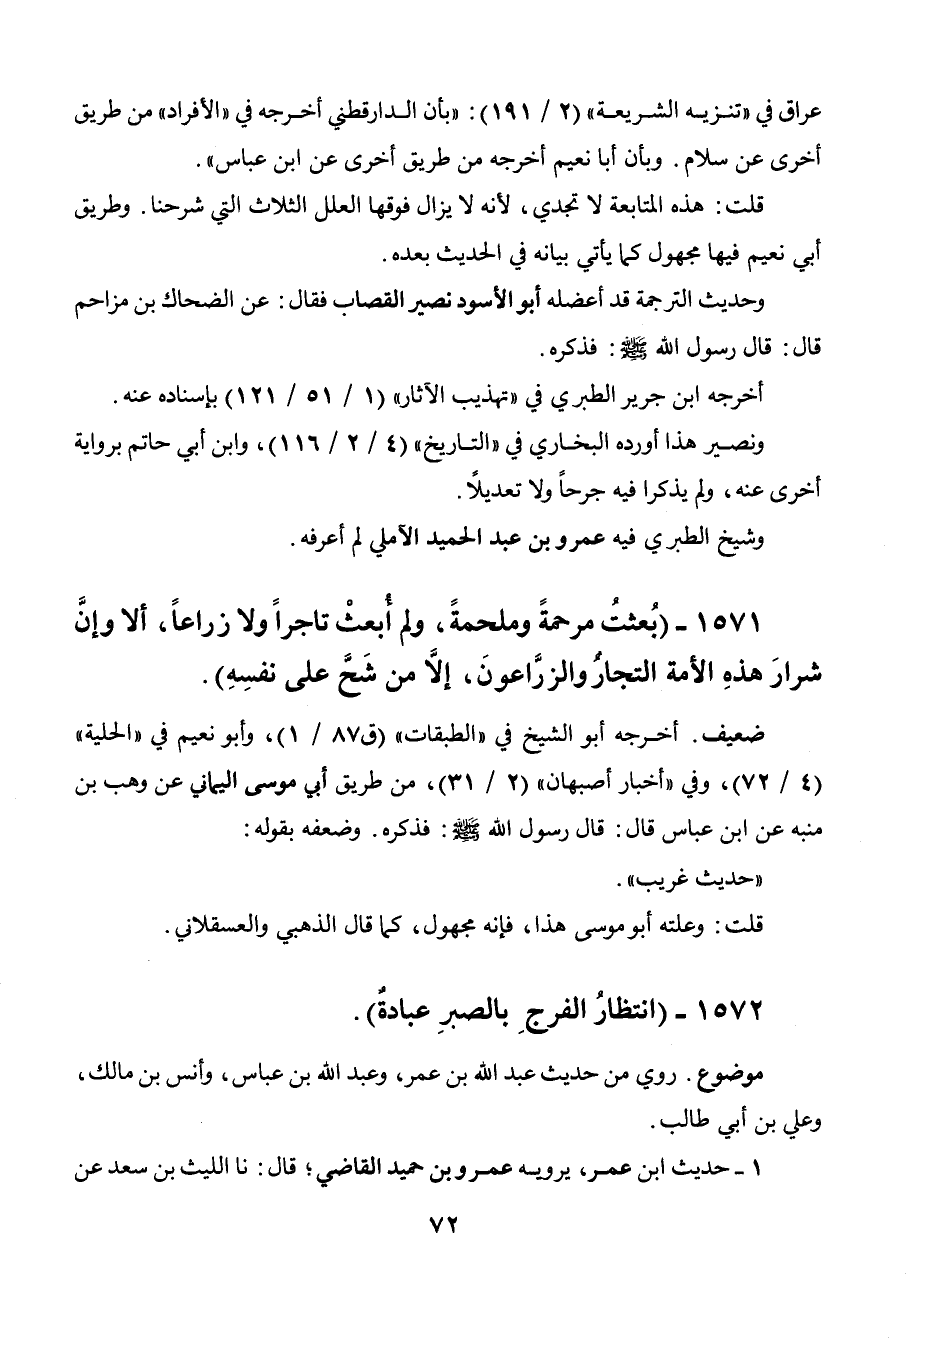 عراق في «تنزيه الشريعة» (٢ / ١٩١): «بأن الدارقطني أخرجه في «الأفراد» من طريق
أخرى عن سلام. وبأن أبا نعيم أخرجه من طريق أخرى عن ابن عباس».
قلت: هذه المتابعة لا تجدي، لأنه لا يزال فوقها العلل الثلاث التي شرحنا. وطريق
أبي نعيم فيها مجهول كما يأتي بيانه في الحديث بعده.
وحديث الترجمة قد أعضله أبو الأسود نصير القصاب فقال: عن الضحاك بن مزاحم
قال: قال رسول الله ﷺ: فذكره.
أخرجه ابن جرير الطبري في «تهذيب الآثار» (١ / ٥١ / ١٢١) بإسناده عنه.
ونصير هذا أورده البخاري في «التاريخ» (٤ / ٢ / ١١٦)، وابن أبي حاتم برواية
أخرى عنه، ولم يذكرا فيه جرحاً ولا تعديلاً.
وشيخ الطبري فيه عمرو بن عبد الحميد الآملي لم أعرفه.
١٥٧١ ـ (بُعثتُ مرحمةً وملحمةً، ولم أُبعثْ تاجراً ولا زراعاً، ألا وإنَّ
شرارَ هذهِ الأمة التجارُ والزرَّاعونَ، إلاَّ من شَحَّ على نفسِهِ).
ضعيف. أخرجه أبو الشيخ في «الطبقات» (ق٨٧ / ١)، وأبو نعيم في «الحلية»
(٤ / ٧٢)، وفي «أخبار أصبهان» (٢ / ٣١)، من طريق أبي موسى اليماني عن وهب بن
منبه عن ابن عباس قال: قال رسول الله ﷺ: فذكره. وضعفه بقوله:
«حديث غريب».
قلت: وعلته أبو موسى هذا، فإنه مجهول، كما قال الذهبي والعسقلاني.
١٥٧٢ ـ (انتظارُ الفرجِ بالصبرِ عبادةٌ).
موضوع. روي من حديث عبد الله بن عمر، وعبد الله بن عباس، وأنس بن مالك،
وعلي بن أبي طالب.
١ ـ حديث ابن عمر، يرويه عمرو بن حميد القاضي؛ قال: نا الليث بن سعد عن
٧٢